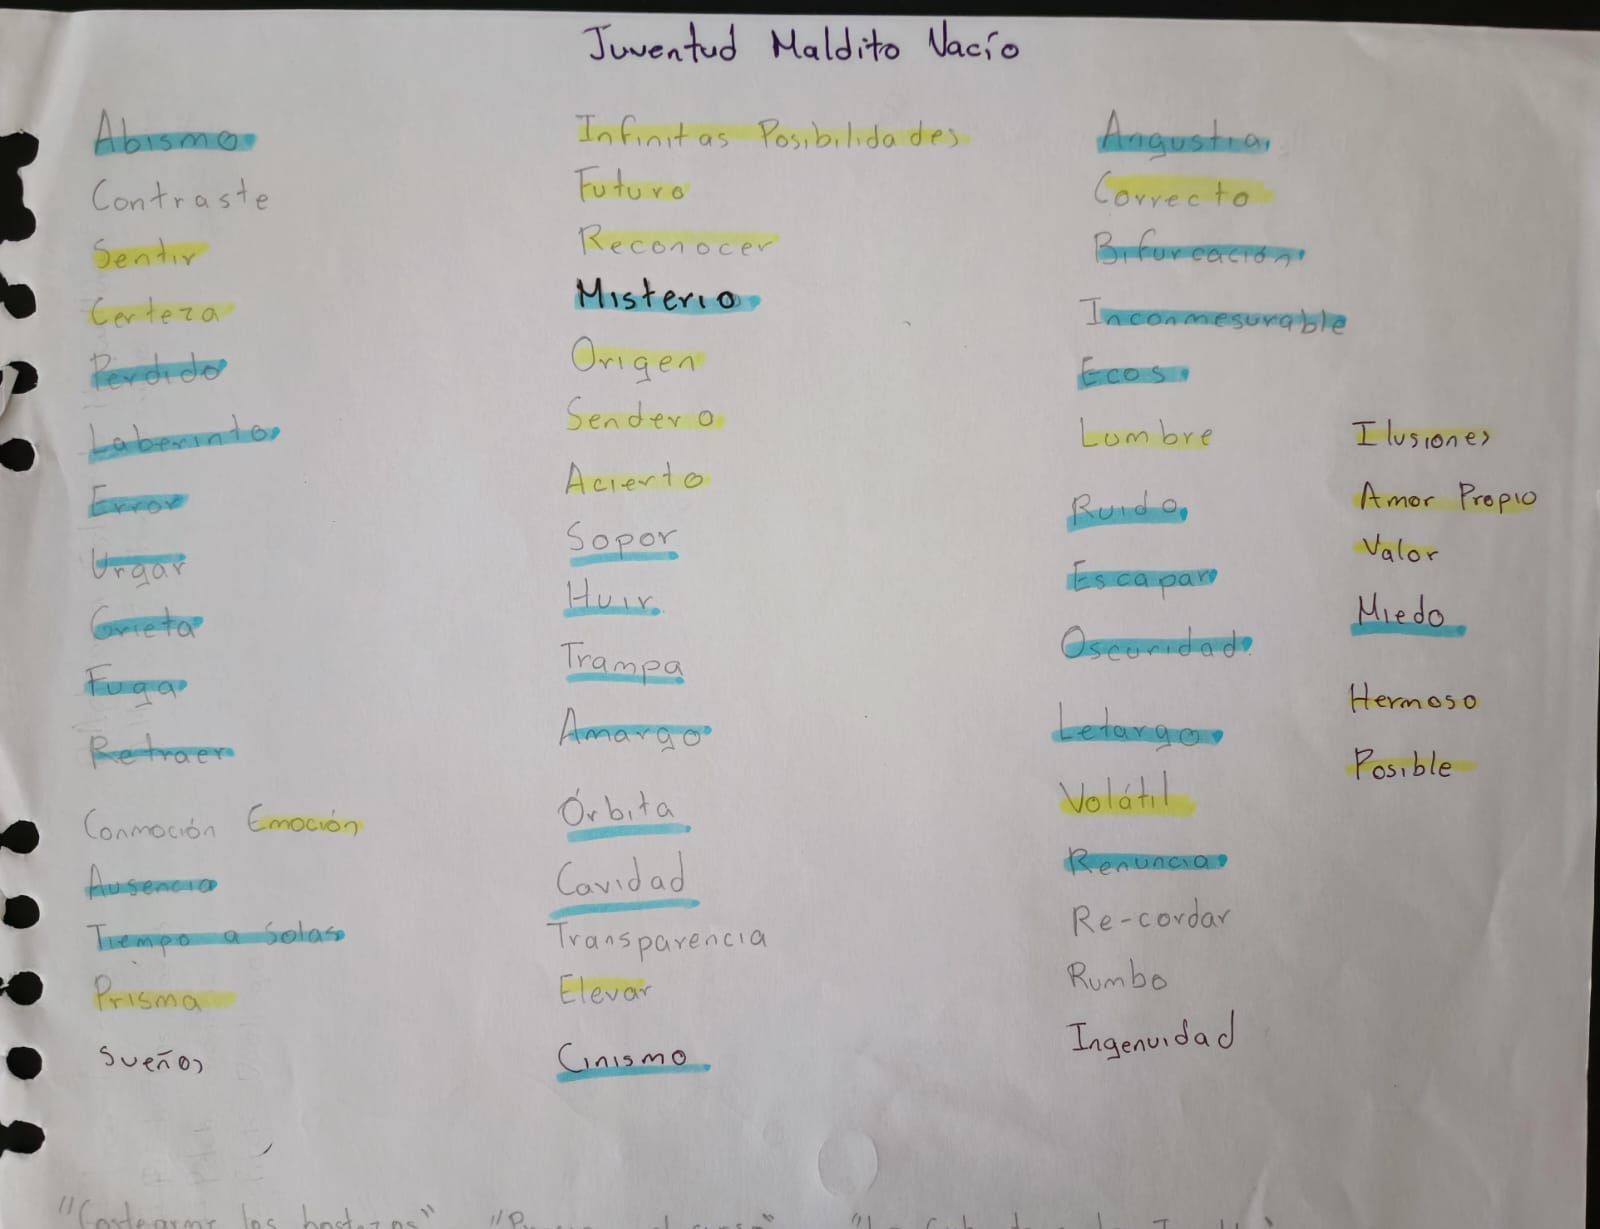 Juventud Maldito Vacío
Abismo
Contraste
Sentir
Certeza
Perdido
Laberinto
Error
Urgar
Grieta
Fuga
Retraer
Conmoción Emoción
Ausencia
Tiempo a Solas
Prisma
Sueños
Infinitas Posibilidades
Futuro
Reconocer
Misterio
Origen
Sendero
Acierto
Sopor
Huir
Trampa
Amargo
Órbita
Cavidad
Transparencia
Elevar
Cinismo
Angustia
Correcto
Bifurcación
Inconmesurable
Ecos
Lumbre
Ruido
Escapar
Oscuridad
Letargo
Volátil
Renuncia
Re-cordar
Rumbo
Ingenuidad
Ilusiones
Amor Propio
Valor
Miedo
Hermoso
Posible